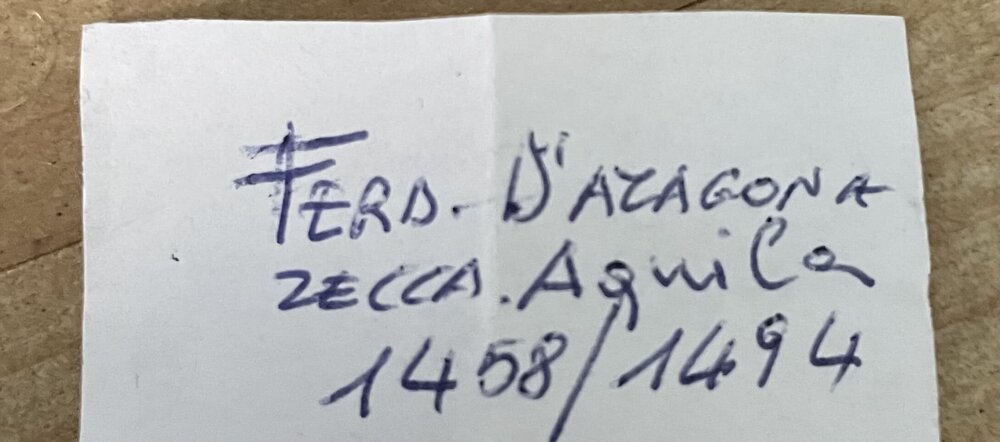 FERD. D'ARAGONA
ZECCA. Aquila
1458/1494